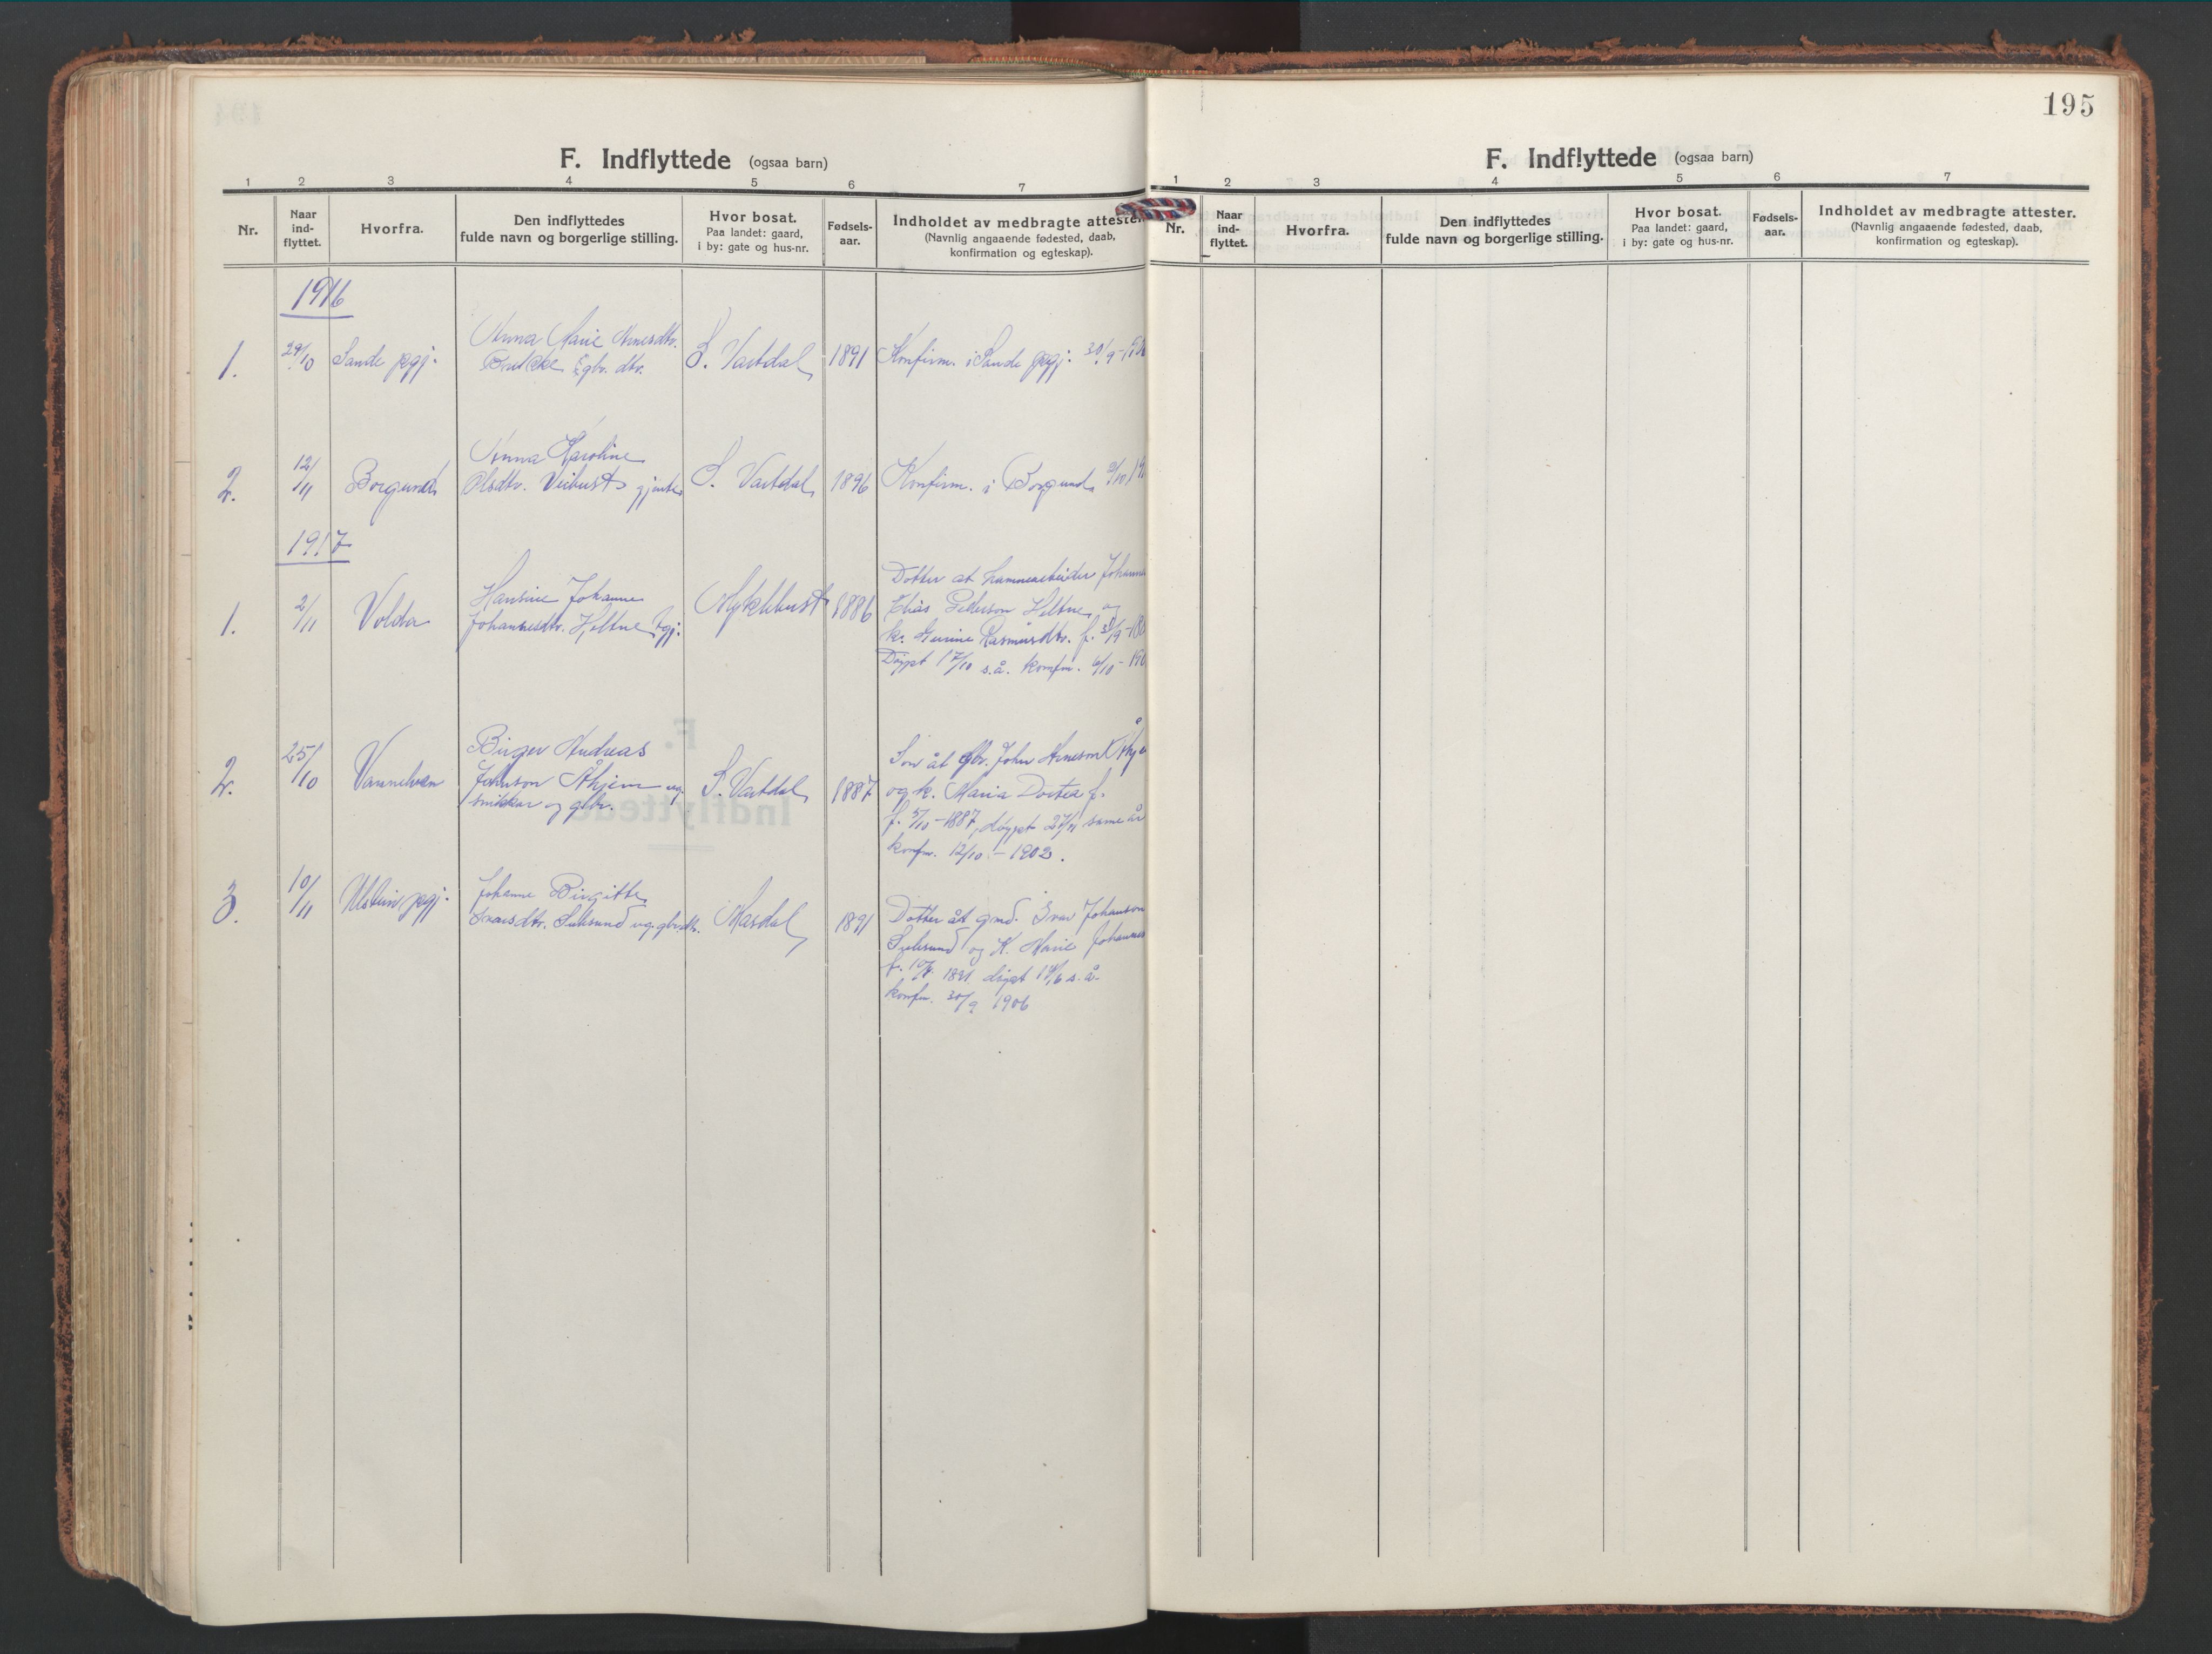 195
F. Indflyttede (ogsaa barn)
1 2 3 4 5 6 7
Nr. Naar ind-flyttet. Hvorfra. Den indflyttedes fulde navn og borgerlige stilling. Hvor bosat. Paa landet: gaard, i by: gate og hus-nr. Fødsels-aar. Indholdet av medbragte attester. (Navnlig angaaende fødested, daab, konfirmation og egteskap).
1916
Anna Marie Arnesdtr.
1. 29/10 Sande pgj. gbr. dtr. S. Vartdal 1891 Konfirm. i Sande pgj. 30/9
Anna Karoline
2. 12/11 Borgund Olsdtr. Veibust gjente S. Vartdal 1896 Konfirm. i Borgund
1917
1. 2/11 Volda Hansine Johanne
Johannesdtr. Hjeltne tgj. Myklebust 1886
Dotter at
Elias Pederson Heltne og
k. Gurine Rasmusdtr. f.
Døypt 17/10 s.å. konfm. 6/10
2. 25/10 Vannelven Birger Andreas
Johnson Åhjem ug.
snikkar og gbr. S. Vartdal 1887
Son åt gbr. John Arneson
og k. Maria Dortea f.
f. 5/10 - 1887, døypt 27/11 same år
konfm. 12/10 - 1902.
3. 10/11 Ulstein pgj. Johanne Birgitte
Ivarsdtr. ug. gbrdtr. Masdal 1891
Dotter åt gmd. Ivar Johanson
og K. Marie Johannes
f. 1891 døypt 14/6 s. å.
konfm. 30/9 1906
F. Indflyttede (ogsaa barn)
1 2 3 4 5 6 7
Nr. Naar ind-flyttet. Hvorfra. Den indflyttedes fulde navn og borgerlige stilling. Hvor bosat. Paa landet: gaard, i by: gate og hus-nr. Fødsels-aar. Indholdet av medbragte attester. (Navnlig angaaende fødested, daab, konfirmation og egteskap).